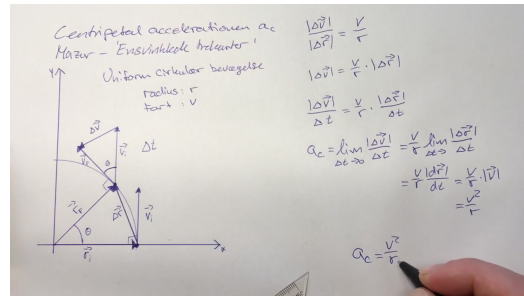 Centripetal accelerationen a_c
Mazur - 'Ensvinklede trekanter'
Uniform cirkulær bevægelse
radius: r
fart: v
y
Δv⃗
v⃗_f
θ
v⃗_i
Δt
r⃗_f
Δr⃗
v⃗_i
θ
r⃗_i
x
|Δv⃗|/|Δr⃗| = v/r
|Δv⃗| = v/r · |Δr⃗|
|Δv⃗|/Δt = v/r · |Δr⃗|/Δt
a_c = lim_{Δt→0} |Δv⃗|/Δt = v/r lim_{Δt→0} |Δr⃗|/Δt
= v/r |dr⃗|/dt = v/r · |v⃗|
= v²/r
a_c = v²/r